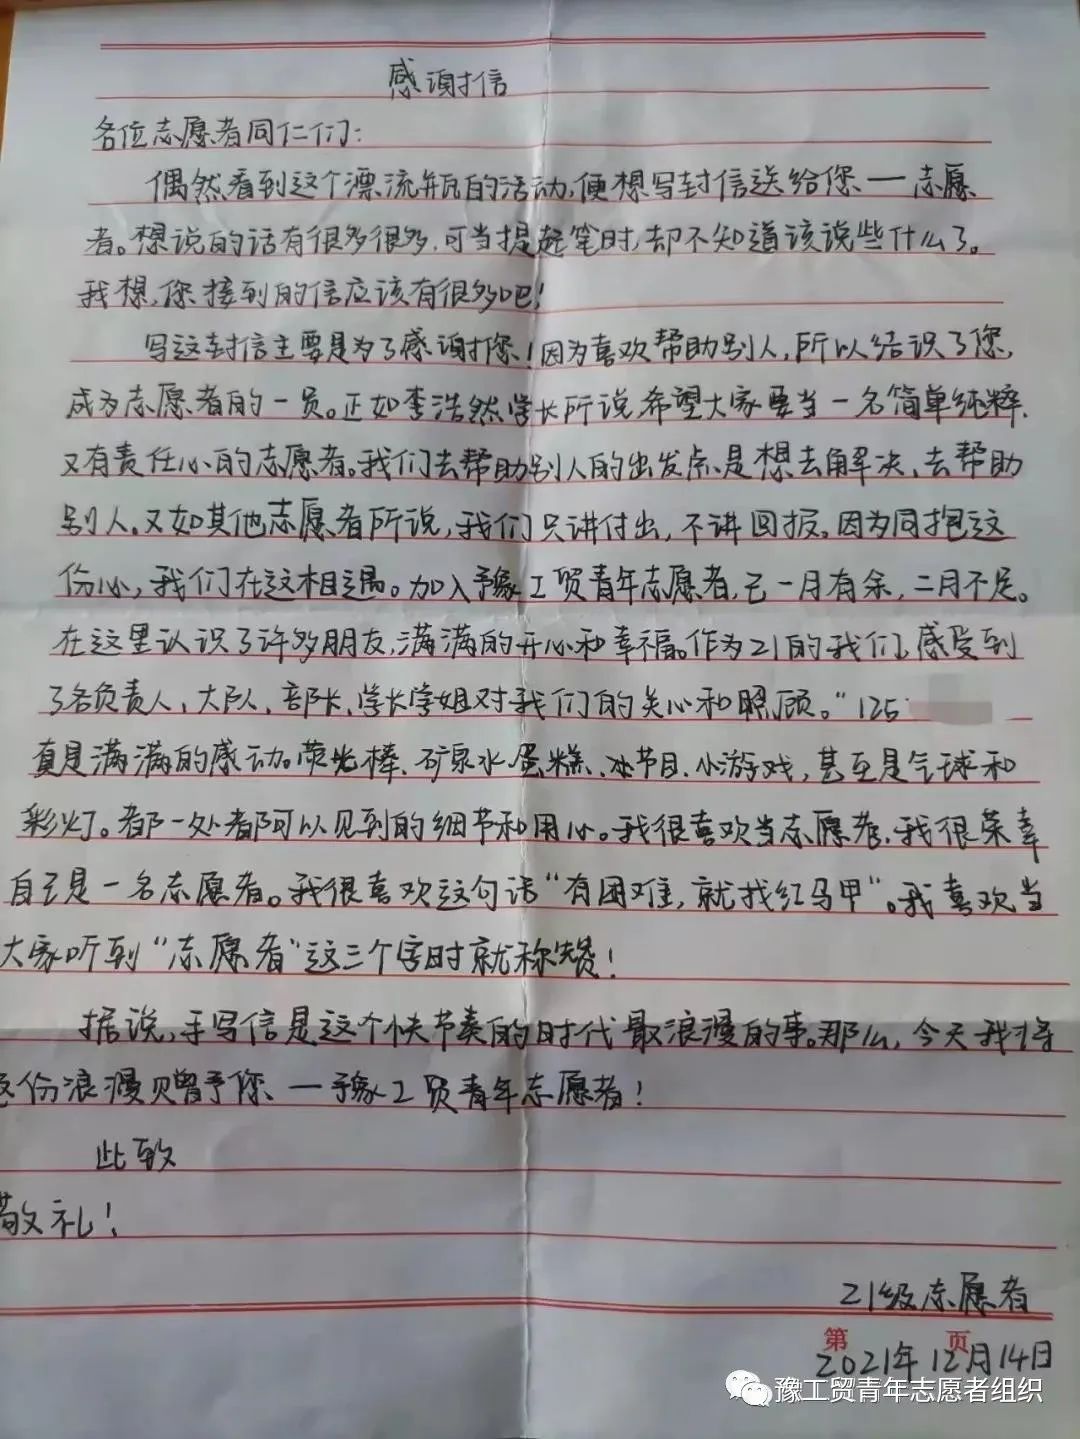 感谢信
各位志愿者同仁们：
偶然看到这个漂流瓶的活动，便想写封信送给您——志愿
者。想说的话有很多很多，可当提起笔时，却不知道该说些什么了。
我想，您接到的信应该有很多吧！
写这封信主要是为了感谢您！因为喜欢帮助别人，所以结识了您，
成为志愿者的一员。正如李浩然学长所说希望大家要当一名简单纯粹，
又有责任心的志愿者。我们去帮助别人的出发点是想去解决、去帮助
别人。又如其他志愿者所说，我们只讲付出，不讲回报。因为同抱这
份心，我们在这相遇。加入豫工贸青年志愿者，已一月有余，二月不足。
在这里认识了许多朋友，满满的开心和幸福。作为21的我们，感受到
了各负责人、大队、部长、学长学姐对我们的关心和照顾。“125
真是满满的感动。荧光棒、矿泉水、蛋糕、节目、小游戏，甚至是气球和
彩灯。都一处都可以见到的细节和用心。我很喜欢当志愿者，我很荣幸
自己是一名志愿者。我很喜欢这句话“有困难，就找红马甲”。我喜欢当
大家听到“志愿者”这三个字时就称赞！
据说，手写信是这个快节奏的时代最浪漫的事。那么，今天我将
这份浪漫赠予您——豫工贸青年志愿者！
此致
敬礼！
21级志愿者
第 页
2021年12月14日
豫工贸青年志愿者组织